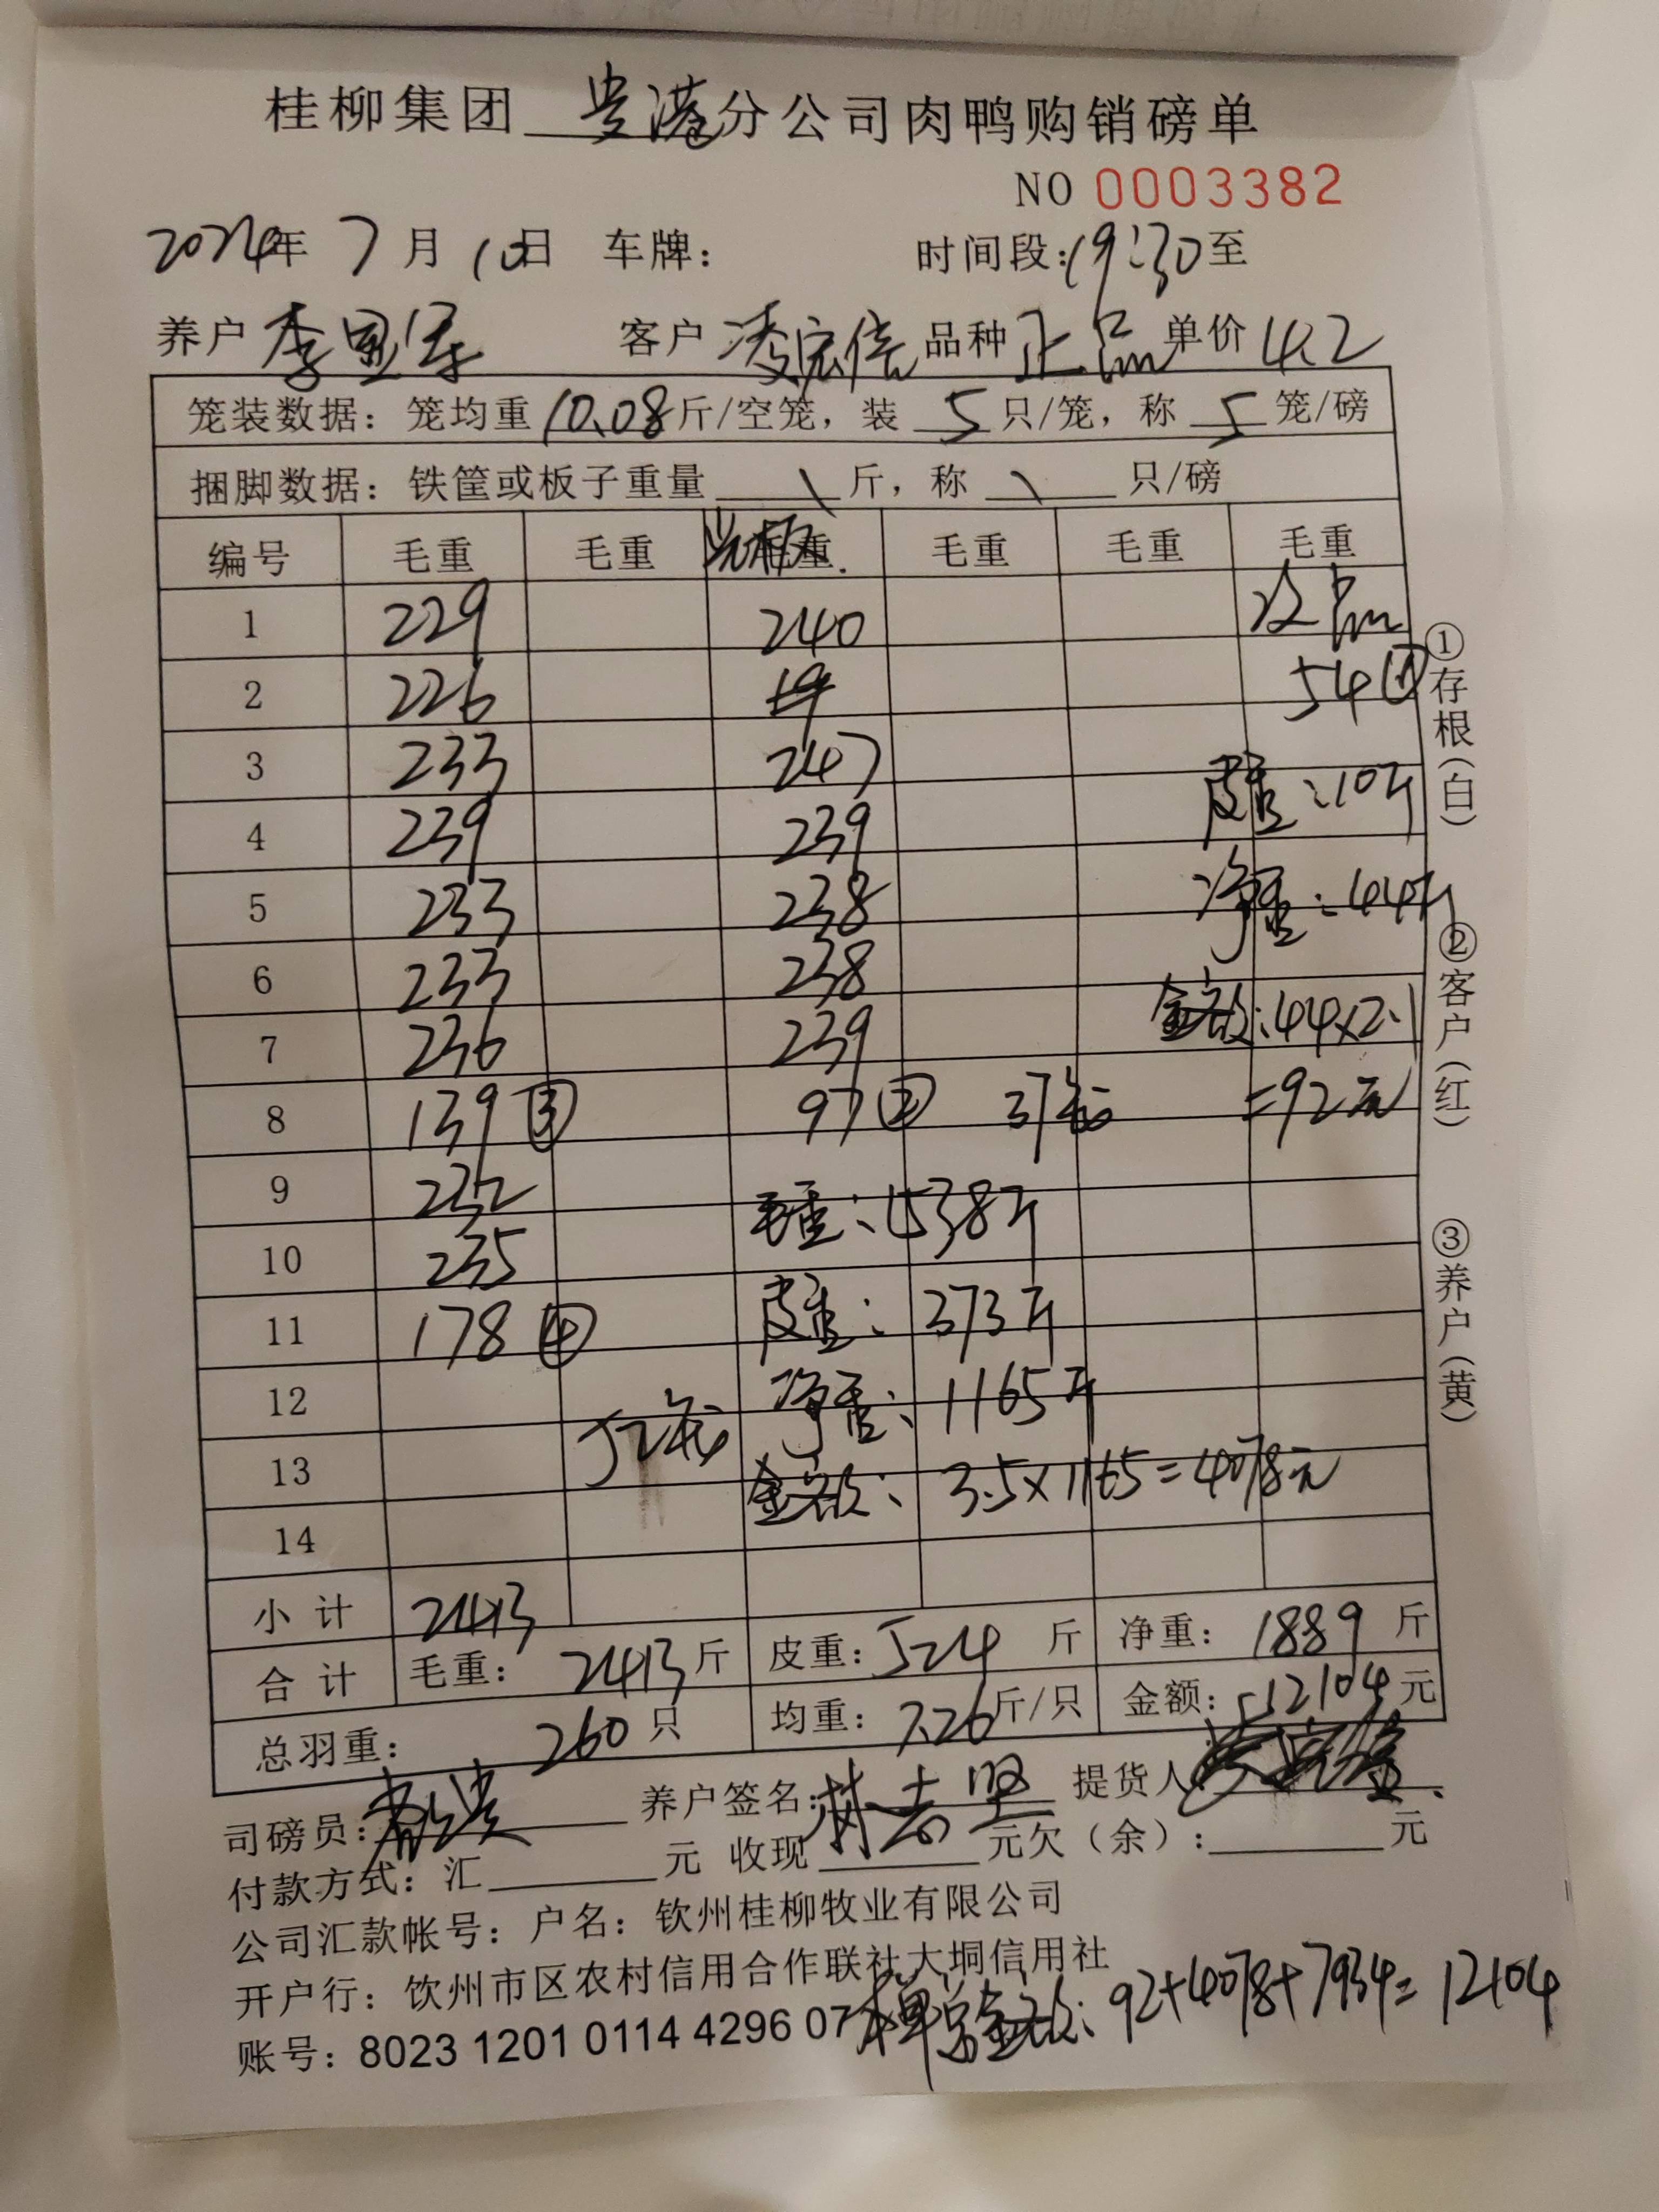 桂柳集团 贵港 分公司肉鸭购销磅单
NO 0003382
2024年 7月 10日 车牌: 时间段:19:30至
养户 李 客户 凌宏信 品种 正品 单价 4.2
笼装数据: 笼均重 10.08 斤/空笼, 装 5 只/笼, 称 5 笼/磅
捆脚数据: 铁筐或板子重量 \ 斤, 称 \ 只/磅
编号 毛重 毛重 光板. 毛重 毛重 毛重
1 229 240 次品
2 226 54①
3 233 247 皮重:10斤
4 239 239 净重:44斤
5 233 238
6 233 238 金额:44×2.1
7 236 239
8 139③ 97② 37笼 =92元
9 232 毛重:1538斤
10 235
11 178④ 皮重:373斤
12 净重:1165斤
13 52笼 金额:3.5×1165=4078元
14
小计 2413
合计 毛重: 2413斤 皮重:524斤 净重:1889斤
总羽重: 260只 均重:7.26斤/只 金额:12104元
司磅员: 养户签名: 提货人:
付款方式: 汇 元 收现 元欠(余): 元
公司汇款帐号: 户名: 钦州桂柳牧业有限公司
开户行: 钦州市区农村信用合作联社大垌信用社
账号: 8023 1201 0114 4296 07 本单总金额:92+4078+7934=12104
①存根(白)
②客户(红)
③养户(黄)